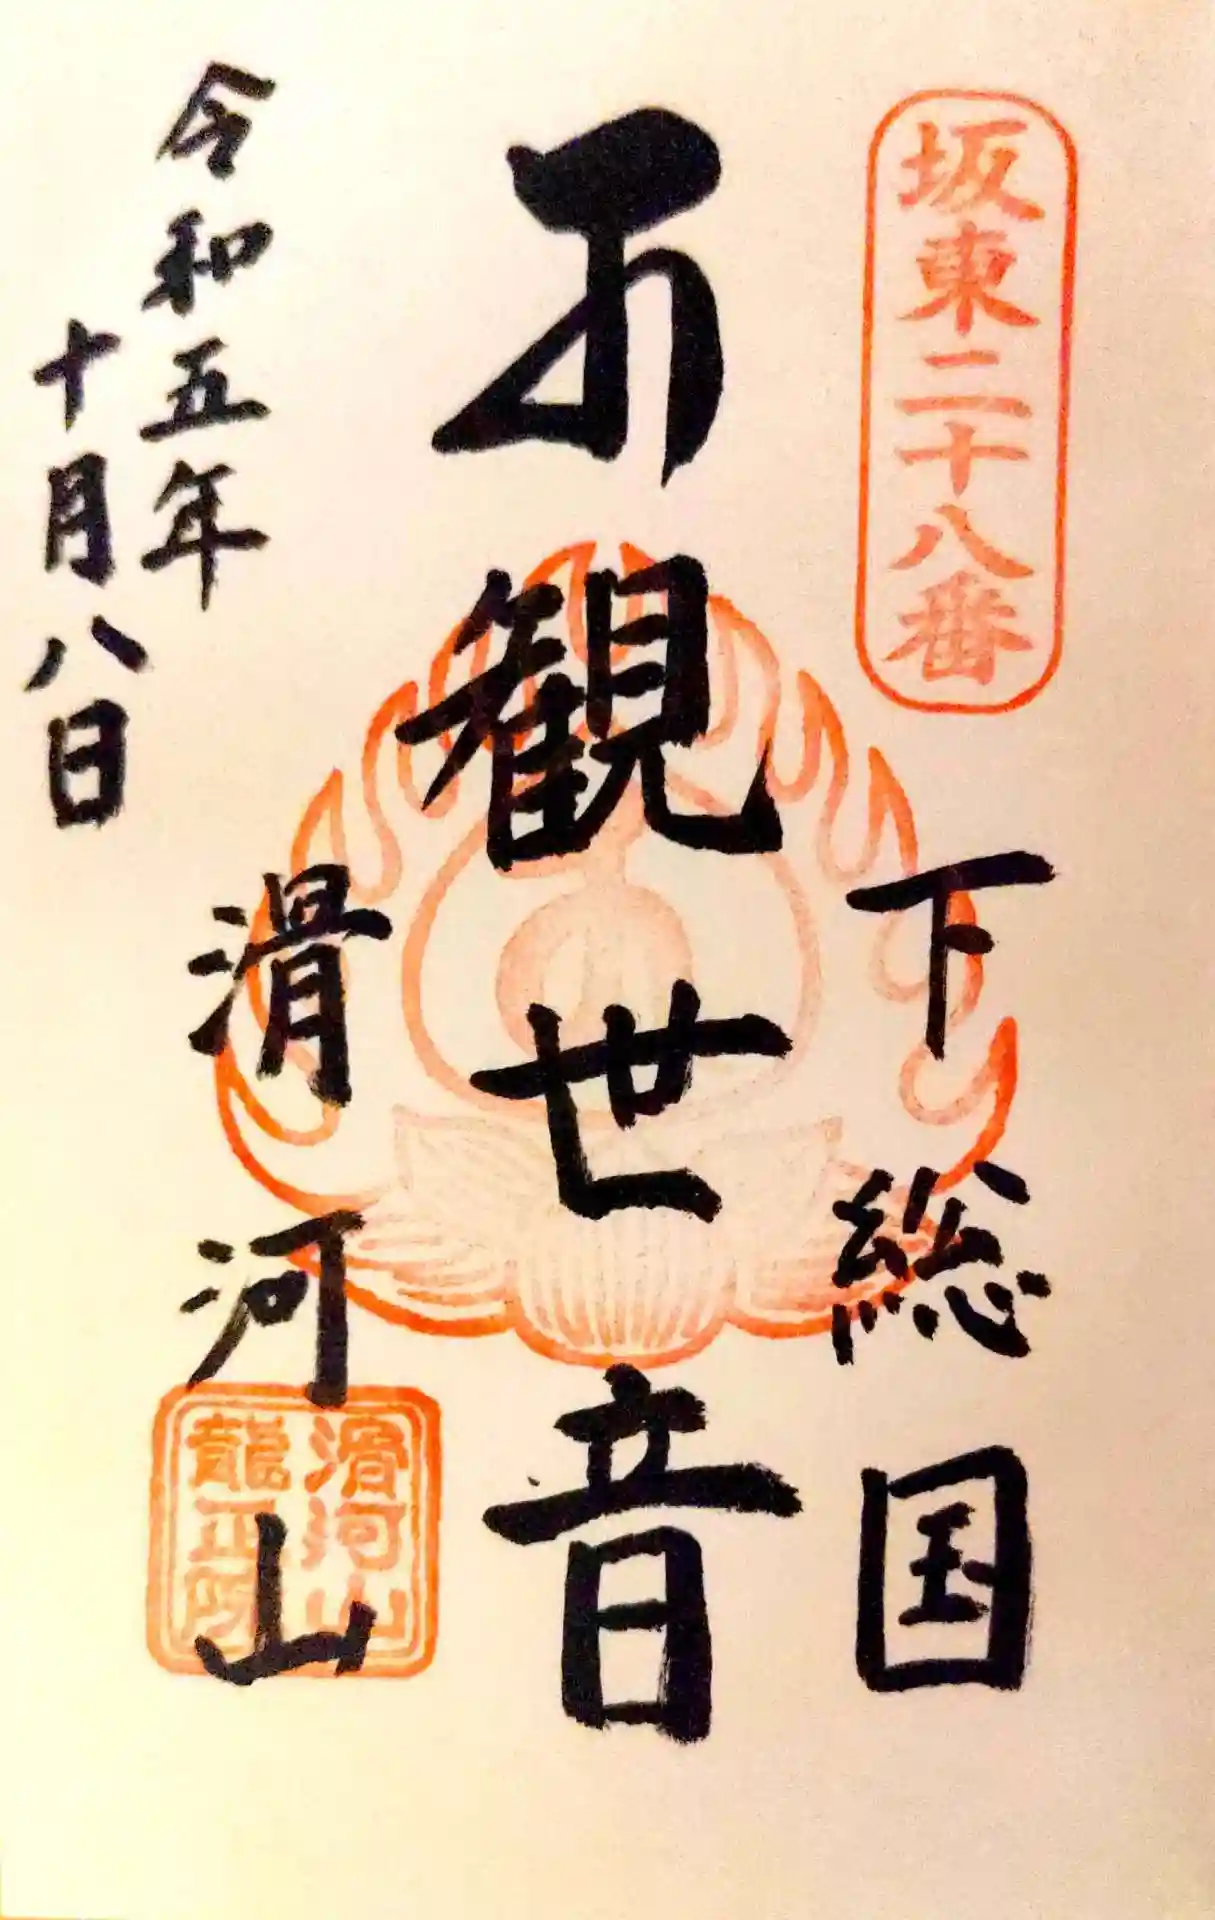 坂東二十八番
下総国
観世音
滑河山
滑河山
龍正院
令和五年
十月八日